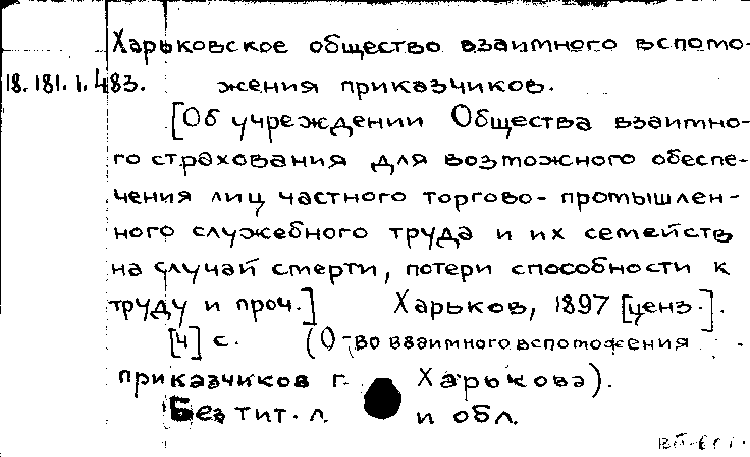 Харьковское общество взаимного вспомо-
18.181.1.483. жения приказчиков.
[Об учреждении Общества взаимно-
го страхования для возможного обеспе-
чения лиц частного торгово-промышлен-
ного служебного труда и их семейств
на случай смерти, потери способности к
труду и проч.] Харьков, 1897 [ценз.].
[4] с. (О-во взаимного вспоможения
приказчиков г. Харькова).
Без тит. л. и обл.